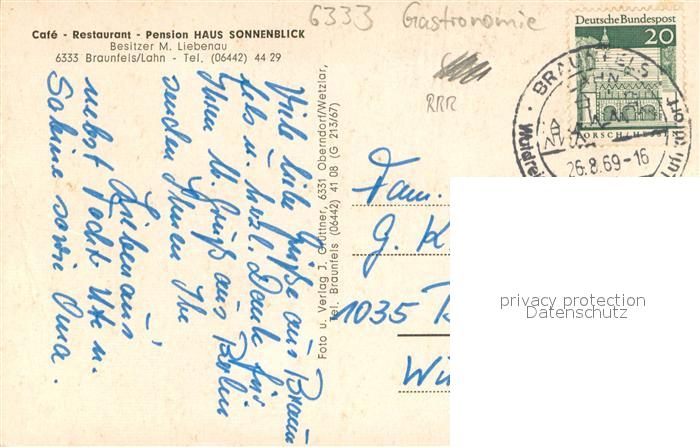 6333 Gastronomie
Café - Restaurant - Pension HAUS SONNENBLICK
Besitzer M. Liebenau
6333 Braunfels/Lahn - Tel. (06442) 44 29
RRR
Deutsche Bundespost
20
LORSCH/HESSEN
BRAUNFELS
26.8.69-16
Viele liebe Grüße aus Braun
fels u. herzl. Dank für
Ihren lb. Gruß aus Berlin
senden Ihnen Ihre
Liebenau's,
nebst Tocht. Ute u.
Sabine sowie Oma.
Foto u. Verlag J. Grüttner, 6331 Oberndorf/Wetzlar,
Tel. Braunfels (06442) 41 08 (G 213/67)
Fam.
G. K
1035
privacy protection
Datenschutz